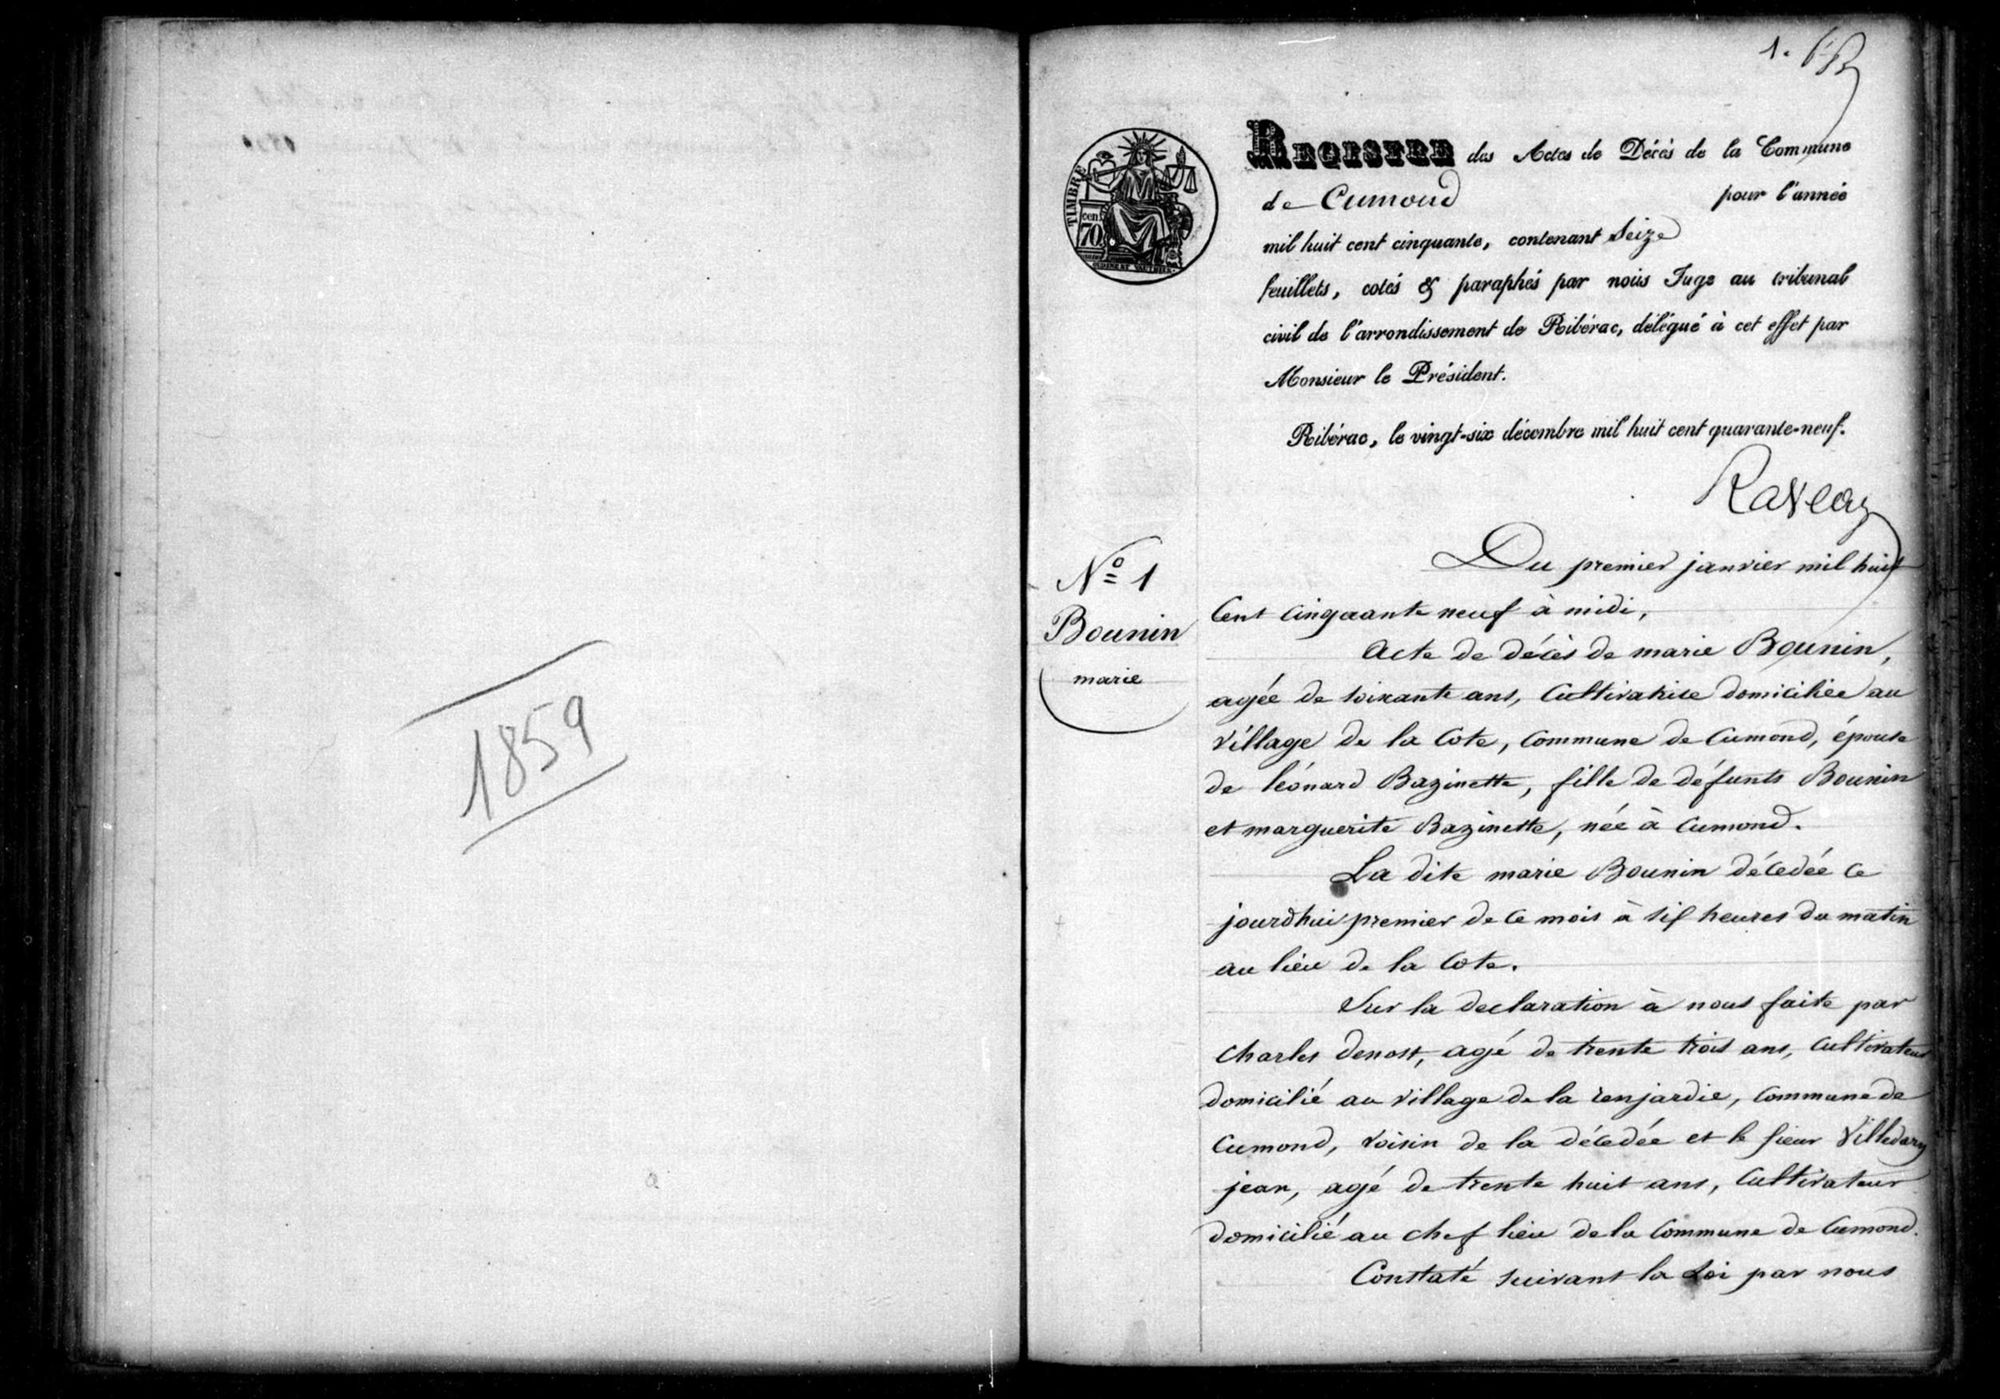 1859
1.
TIMBRE
cen.
70
REGISTRE des Actes de Décès de la Commune
de Cumond pour l'année
mil huit cent cinquante, contenant Seize
feuillets, cotés & paraphés par nous Juge au tribunal
civil de l'arrondissement de Ribérac, délégué à cet effet par
Monsieur le Président.
Ribérac, le vingt-six décembre mil huit cent quarante-neuf.
N° 1
Bounin
marie
Du premier janvier mil huit
Cent Cinquante neuf à midi,
Acte de décès de marie Bounin,
agée de soixante ans, Cultivatrice domiciliée au
village de la Cote, Commune de Cumond, épouse
de léonard Bazinette, fille de défunts Bounin
et marguerite Bazinette, née à Cumond.
La dite marie Bounin décédée ce
jourdhui premier de ce mois à sif heures du matin
au lieu de la Cote.
Sur la declaration à nous faite par
Charles Denost, agé de trente trois ans, Cultivateur
domicilié au village de la renjardie, Commune de
Cumond, voisin de la décedée et le sieur Villedary
jean, agé de trente huit ans, Cultivateur
domicilié au chef lieu de la Commune de Cumond.
Constaté suivant la Loi par nous